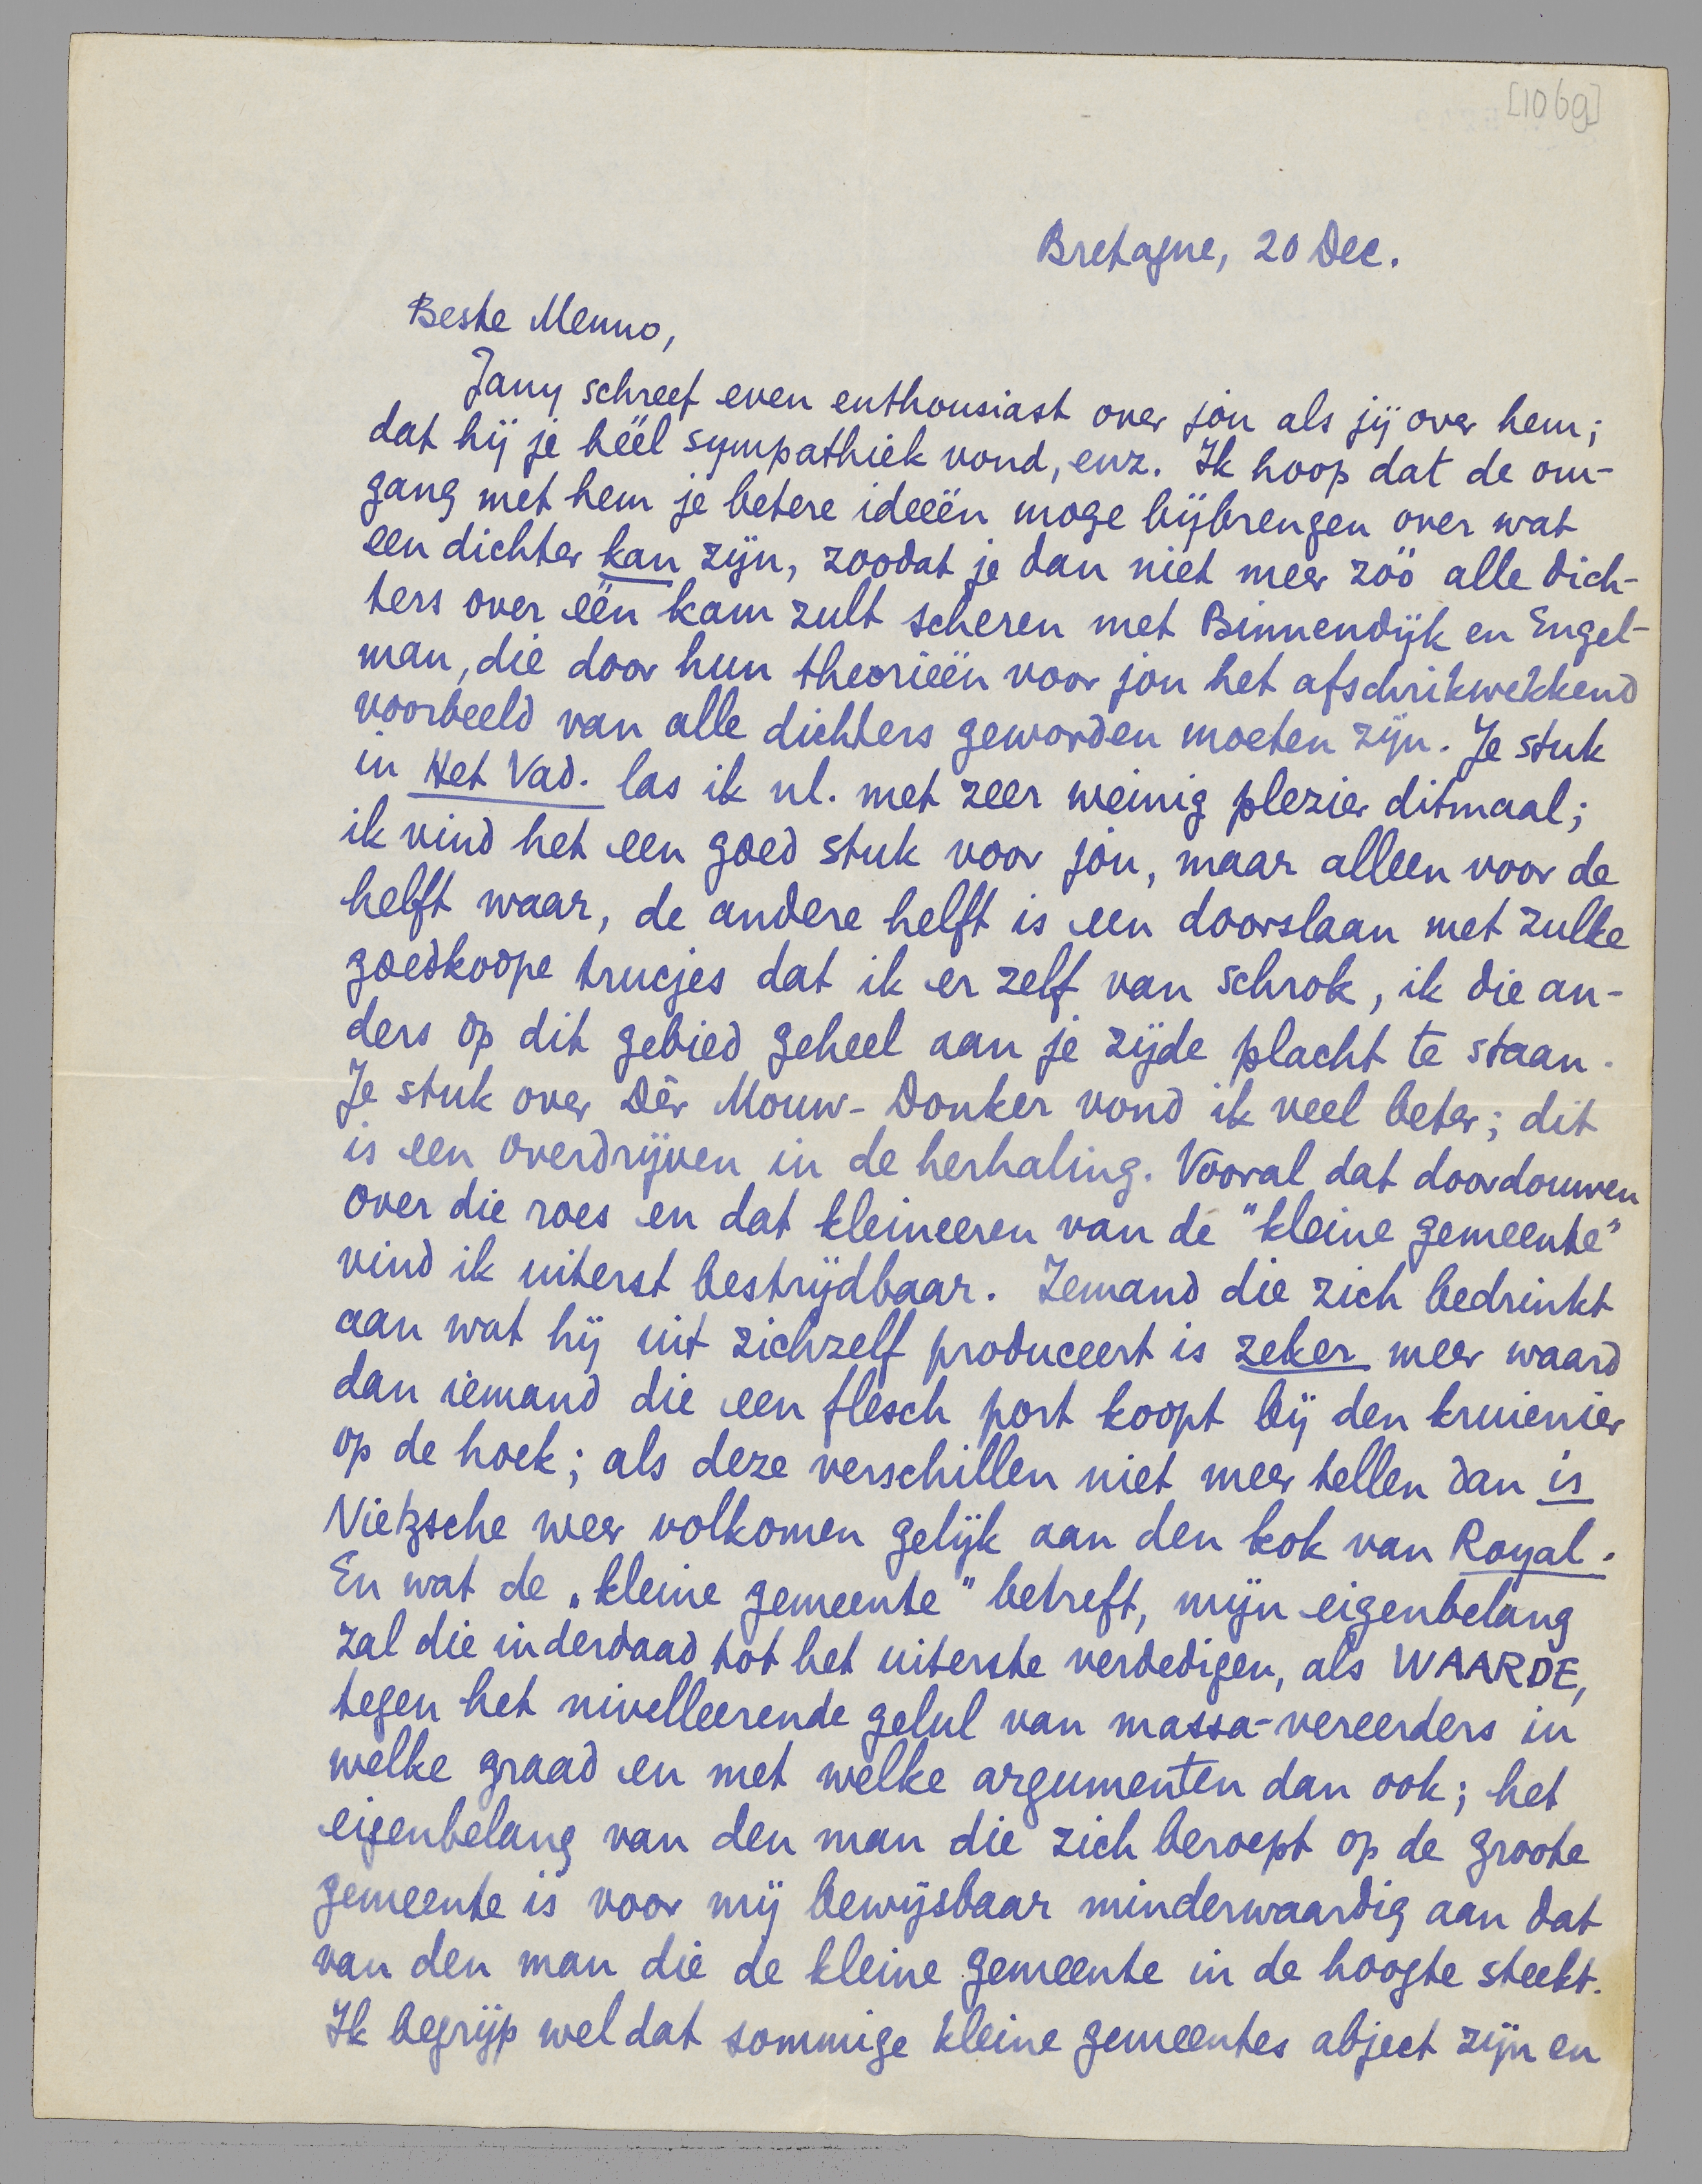 [1069]
Bretagne, 20 Dec.
Beste Menno,
Jany schreef even enthousiast over jòu als jij over hem;
dat hij je héél sympathiek vond, enz. Ik hoop dat de om-
gang met hem je betere ideeën moge bijbrengen over wat
een dichter kan zijn, zoodat je dan niet meer zóó alle dich-
ters over één kam zult scheren met Binnendijk en Engel-
man, die door hun theorieën voor jou het afschrikwekkend
voorbeeld van alle dichters geworden moeten zijn. Je stuk
in Het Vad. las ik nl. met zeer weinig plezier ditmaal;
ik vind het een goed stuk voor jòu, maar alleen voor de
helft waar, de andere helft is een doorslaan met zulke
goedkoope trucjes dat ik er zelf van schrok, ik die an-
ders op dit gebied geheel aan je zijde placht te staan.
Je stuk over Dèr Mouw-Donker vond ik veel beter; dit
is een overdrijven in de herhaling. Vooral dat doordouwen
over die roes en dat kleineeren van de "kleine gemeente"
vind ik uiterst bestrijdbaar. Iemand die zich bedrinkt
aan wat hij uit zichzelf produceert is zeker meer waard
dan iemand die een flesch port koopt bij den kruienier
op de hoek; als deze verschillen niet meer tellen dan is
Nietzsche weer volkomen gelijk aan den kok van Royal.
En wat de „kleine gemeente" betreft, mijn eigenbelang
zal die inderdaad tot het uiterste verdedigen, als WAARDE,
tegen het nivelleerende gelul van massa-vereerders in
welke graad en met welke argumenten dan ook; het
eigenbelang van den man die zich beroept op de groote
gemeente is voor mij bewijsbaar minderwaardig aan dat
van den man die de kleine gemeente in de hoogte steekt.
Ik begrijp wel dat sommige kleine gemeentes abject zijn en